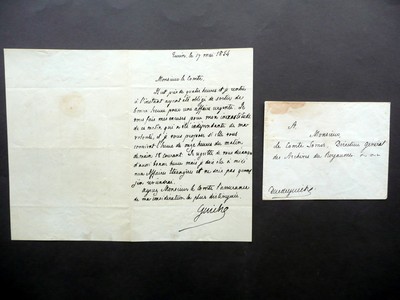 le 17 mai 1854
Monsieur le Comte,
Il est près de quatre heures et je rentre
à l'instant ayant été obligé de sortir de
bonne heure pour une affaire urgente. Je
vous fais mes excuses pour mon inexactitude
de ce matin, qui a été indépendante de ma
volonté, et je vous propose si elle vous
convient l'heure de onze heures du matin
demain 18 courant. Je regrette de vous
d'aussi bonne heure mais je dois être à midi
aux Affaires Etrangères et ne sais pas quand
j'en reviendrai.
Agréez Monsieur le Comte l'assurance
de ma considération la plus distinguée.
Guiche
A
Monsieur
le Comte Directeur général
des Archives du Royaume